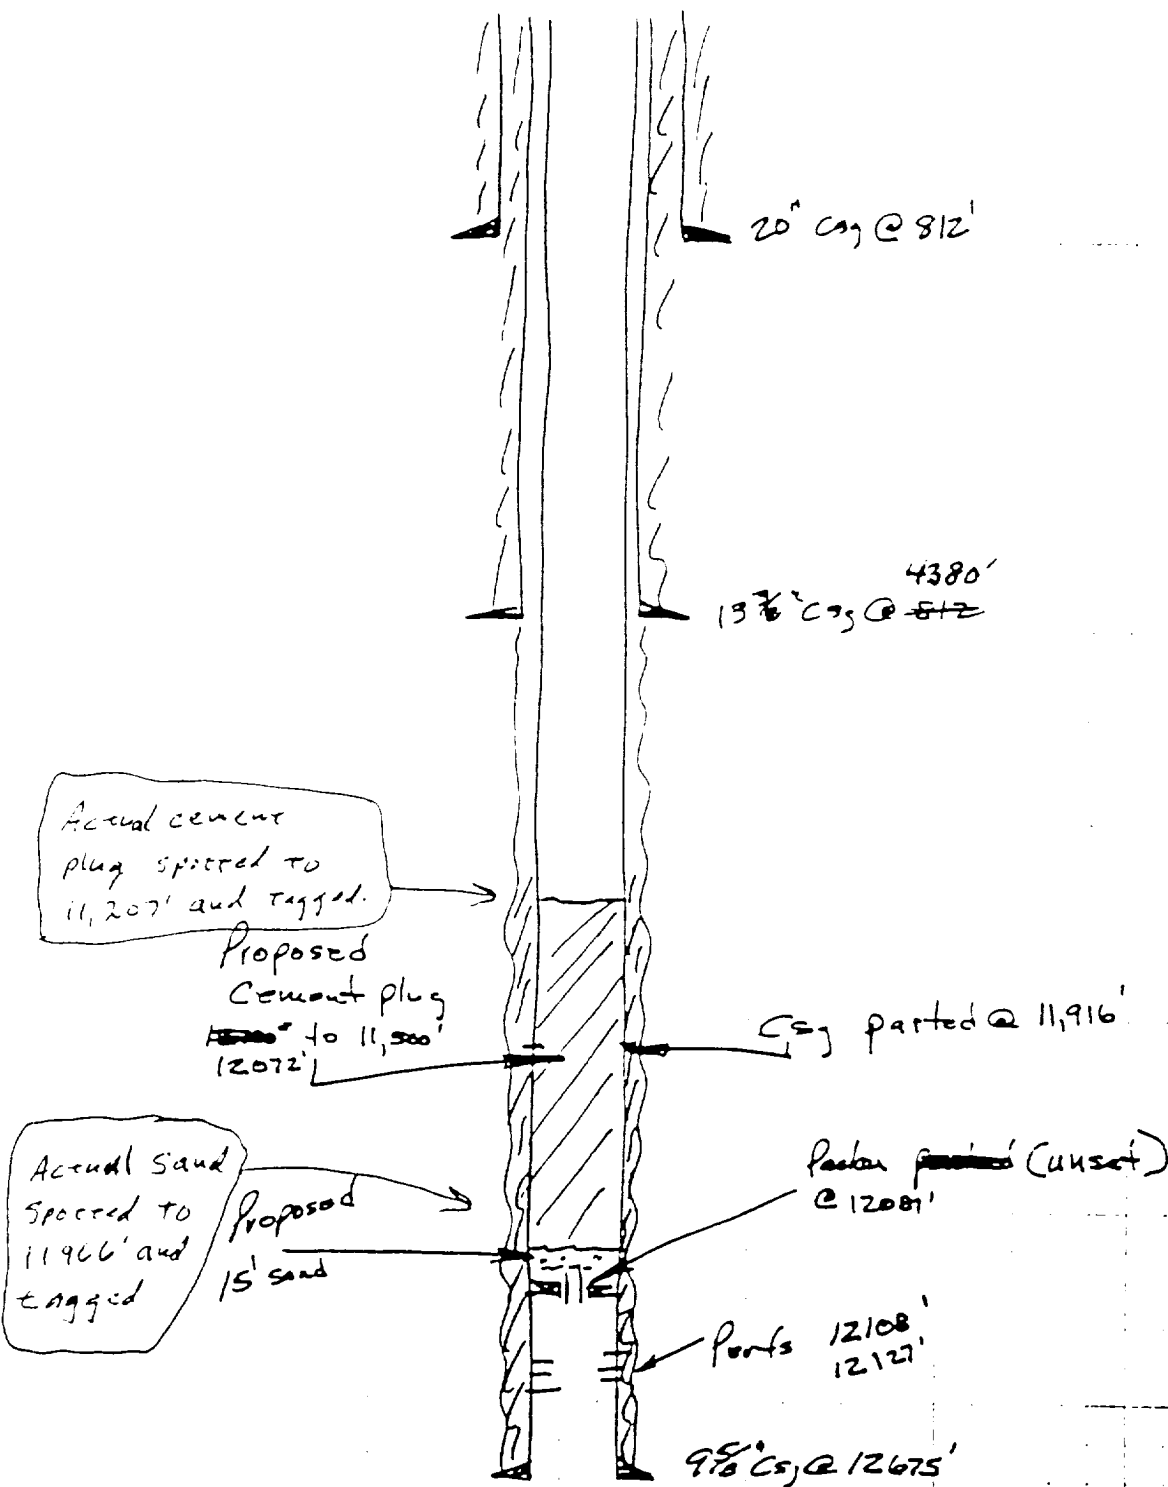 20" Csg @ 812'
4380'
13 3/8" Csg @ 812
Actual cement
plug spotted to
11,207' and tagged.
Proposed
Cement plug
to 11,500'
12072'
Csg parted @ 11,916'
Actual Sand
spotted to
11966' and
tagged
Proposed
15' sand
Packer (unset)
@ 12087'
Perfs 12108'
12127'
9 5/8" Csg @ 12675'